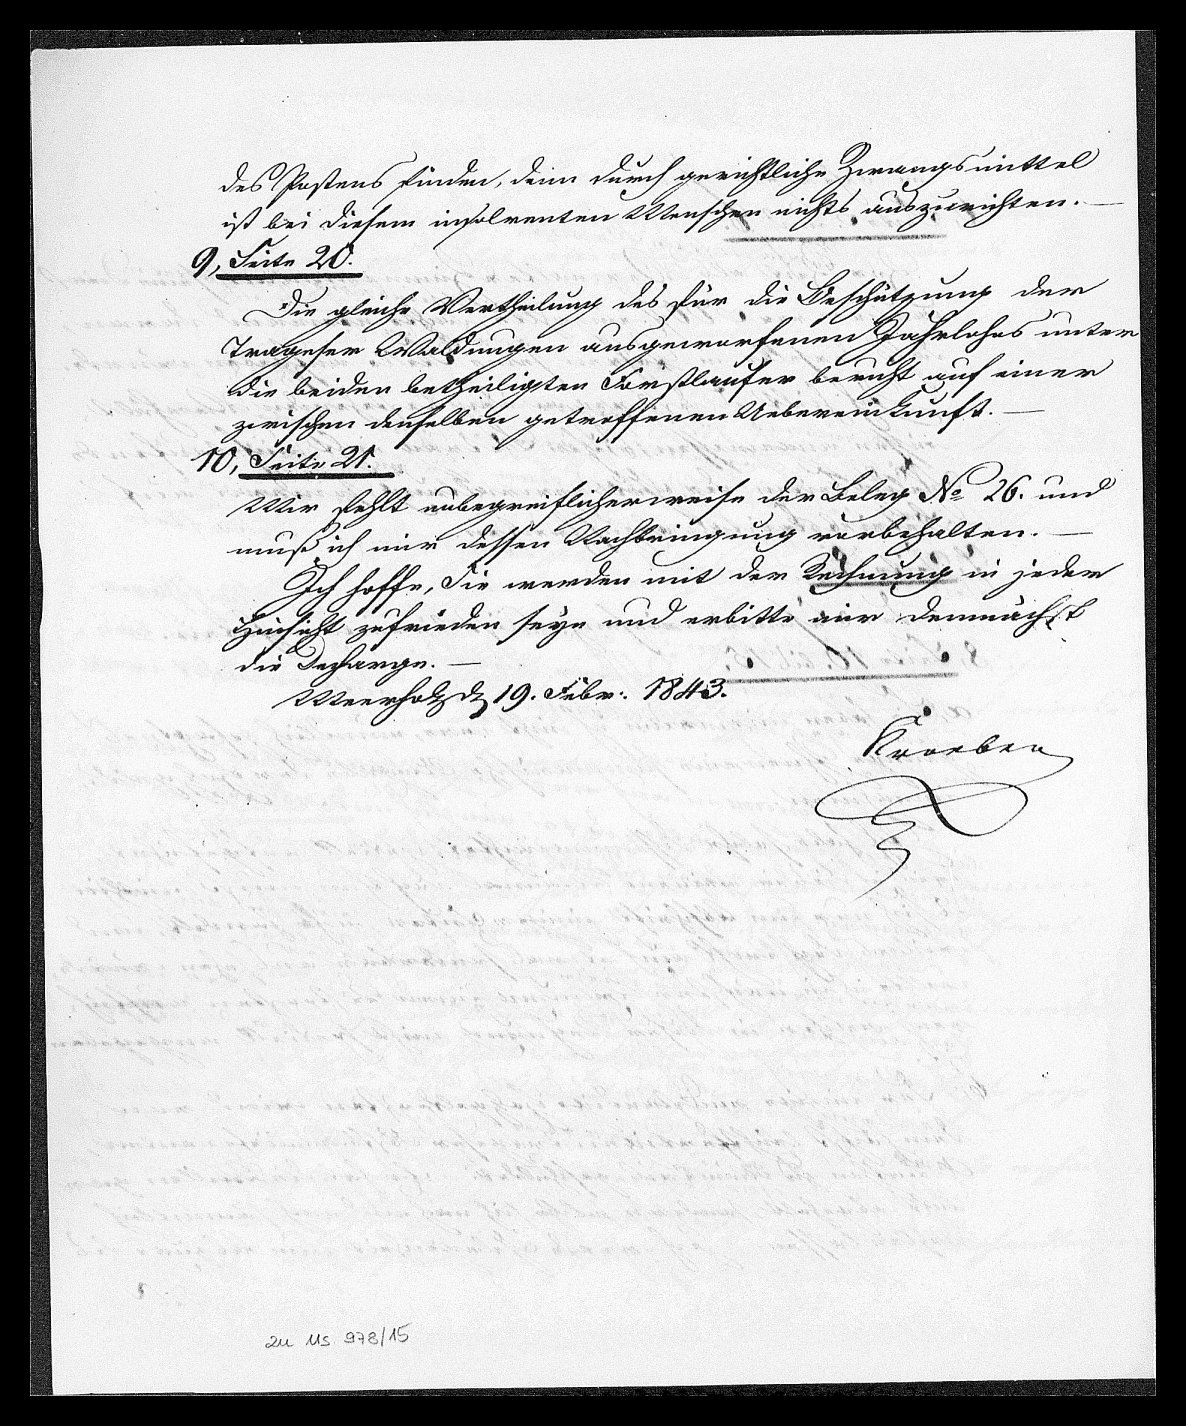 des Postens finden, denn durch gerichtliche Zwangsmittel
ist bei diesem insolventen Menschen nichts auszurichten. —
9, Seite 20.
Die gleiche Vertheilung des für die Beschützung der
Trageser Waldungen ausgeworfenen Jahrlohns unter
die beiden betheiligten Forstlaufer beruht auf einer
zwischen denselben getroffenen Uebereinkunft. —
10, Seite 21.
Mir fehlt unbegreiflicherweise der Beleg No 26. und
muß ich mir dessen Nachbringung vorbehalten. —
Ich hoffe, Sie werden mit der Rechnung in jeder
Hinsicht zufrieden seyn und erbitte mir demnächst
die Decharge. —
Meerholz d 19. Febr. 1843.
Kroeber
zu Ms 978/15